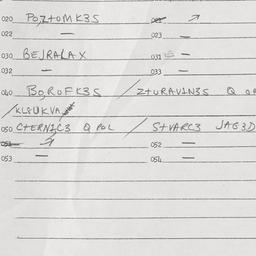 020 POZTOMK3S
022 — 023 —
030 BEJRALAX 031 —
032 — 033 —
040 BOROFK3S / ZTURAVIN3S Q OR
/KLGUKVA
050 CTERNIC3 Q POL / STVARC3 JAG3D
052 —
053 — 054 —